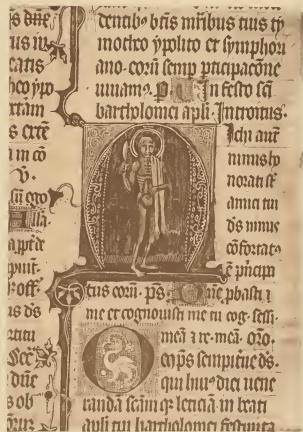 s dñe
us in
eatis
heo ypo
rtam
s certe
a in cō
℣.
sū ego
lla.
apt' de
piunt.
roff.
us ds
Ecce
dñe
s ob
dentib; btis mr̄ibus tuis ty
motheo ypolito et symphori
ano. corū semp pticipacōne
uiuam⁹. P. In festo sci
bartholomei apli. Introitus.
Ichi aut
nimis ho
norati st̄
amici tui
ds nimis
cōfortat⁹
ē pⁱncipa
tus corū. ps. Dn̄e pbasti
me et cognouisti me tu cog. sessi
meā et re. meā. oro.
O mps sempitne ds.
qui hui⁹ diei uene
randā scām q; leticiā in beati
apli tui bartholomei festiuita